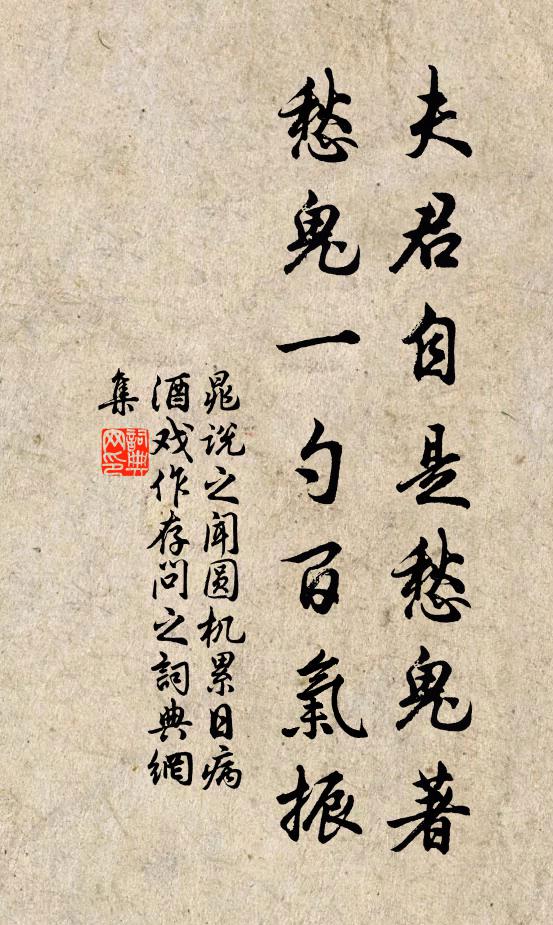 夫君自是愁鬼著
愁鬼一勺百氣振
晁说之闻圆机累日病
酒戏作存问之詞典網
集
詞典
网印